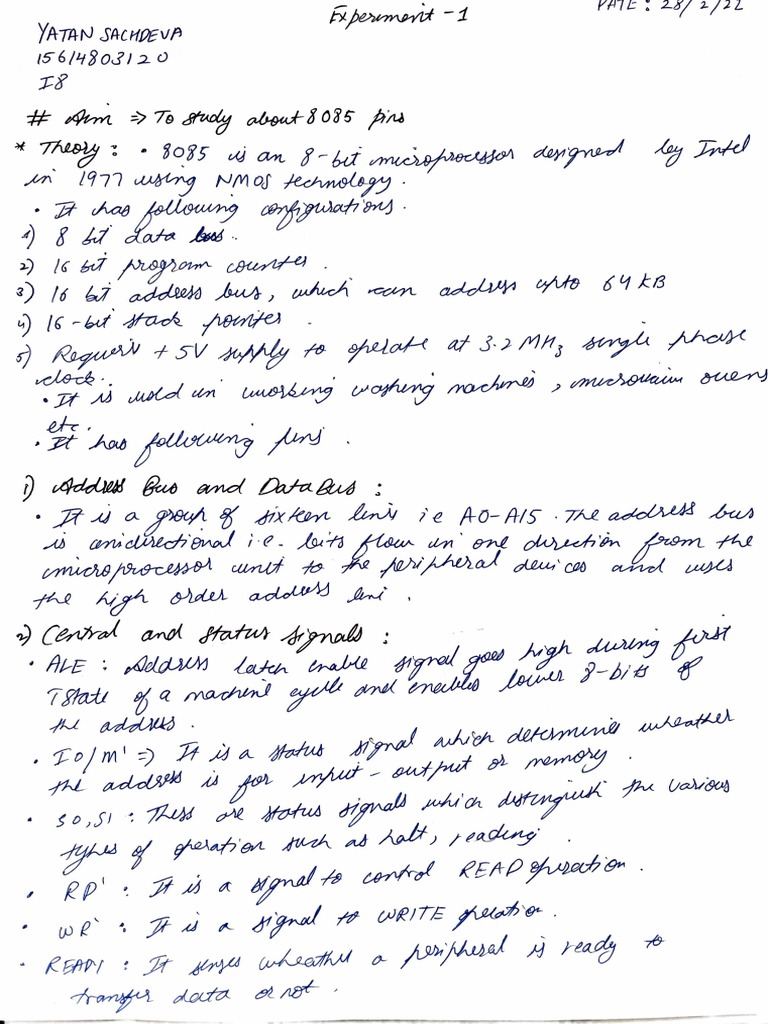 Experiment - 1
DATE : 28/2/22
YATAN SACHDEVA
15614803120
I8
# Aim => To study about 8085 pins
* Theory : • 8085 is an 8-bit microprocessor designed by Intel
in 1977 using NMOS technology.
• It has following configurations.
1) 8 bit data bus.
2) 16 bit program counter.
3) 16 bit address bus, which can address upto 64 KB
4) 16-bit stack pointer.
5) Requires +5V supply to operate at 3.2 MHz single phase
clock.
• It is used in working washing machines, microwave ovens
etc.
• It has following pins.
1) Address Bus and Data Bus :
• It is a group of sixteen lines i.e A0-A15. The address bus
is unidirectional i.e. bits flow in one direction from the
microprocessor unit to the peripheral devices and uses
the high order address line.
2) Central and status signals :
• ALE : Address latch enable signal goes high during first
TState of a machine cycle and enables lower 8-bits of
the address.
• IO/M' => It is a status signal which determines wheather
the address is for input-output or memory.
• S0, S1 : These are status signals which distinguish the various
types of operation such as halt, reading.
• RD' : It is a signal to control READ operation.
• WR' : It is a signal to WRITE operation.
• READY : It senses wheather a peripheral is ready to
transfer data or not.